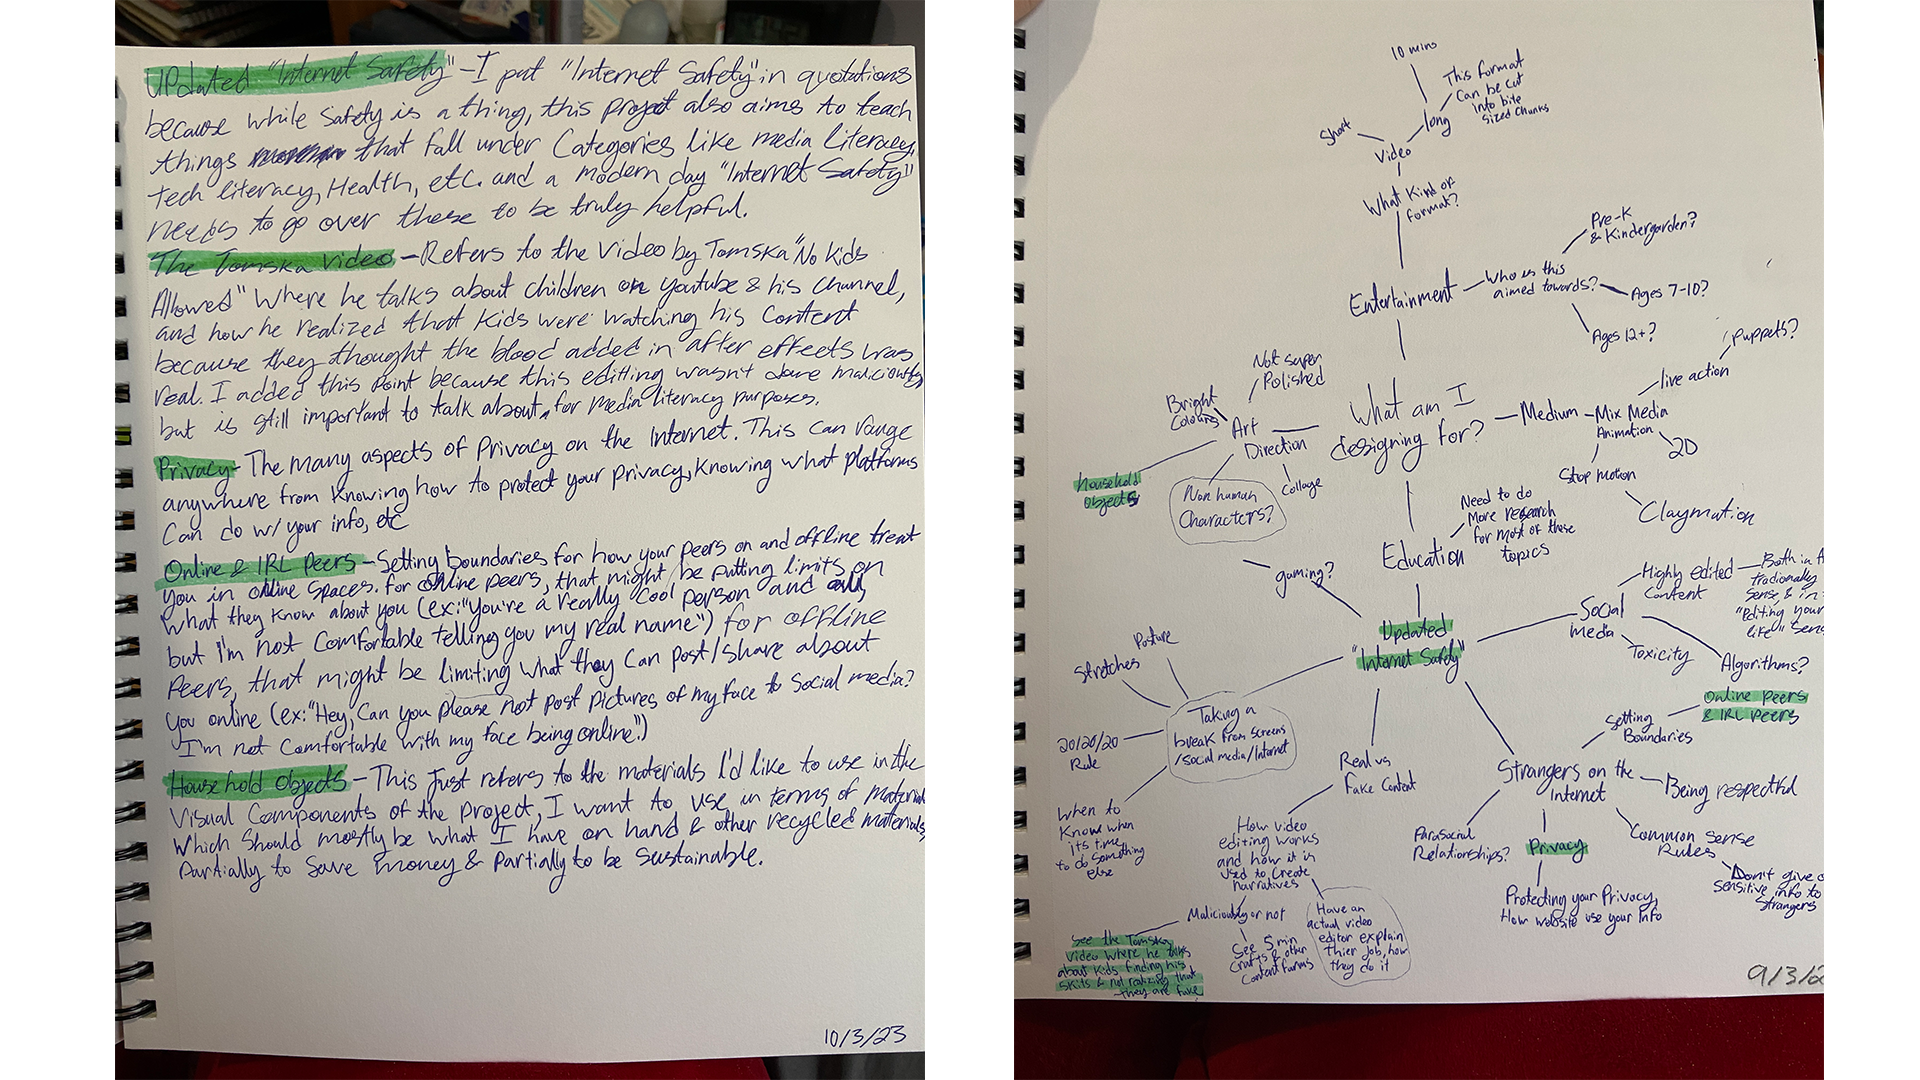 Updated "Internet Safety" - I put "Internet Safety" in quotations
because while safety is a thing, this project also aims to teach
things that fall under Categories like media literacy,
tech literacy, Health, etc. and a modern day "Internet Safety"
needs to go over these to be truly helpful.
The Tomska video - Refers to the video by Tomska "No Kids
Allowed" Where he talks about children on youtube & his channel,
and how he realized that kids were watching his content
because they thought the blood added in after effects was
real. I added this point because this editting wasn't done maliciously
but is still important to talk about, for media literacy purposes.
Privacy - The many aspects of Privacy on the Internet. This can range
anywhere from knowing how to protect your privacy, knowing what platforms
Can do w/ your info, etc
Online & IRL Peers - Setting boundaries for how your peers on and offline treat
you in online spaces. for online peers, that might be putting limits on
what they know about you (ex: "you're a really cool person and all,
but I'm not comfortable telling you my real name") for offline
Peers, that might be limiting what they can post/share about
you online (ex: "Hey, Can you please not post pictures of my face to Social media?
I'm not comfortable with my face being online.")
Household Objects - This just refers to the materials I'd like to use in the
Visual Components of the project, I want to, use in terms of material
which should mostly be what I have on hand & other recycled materials,
Partially to save money & partially to be sustainable.
10/3/23
10 mins
This format
Can be cut
into bite
sized chunks
long
Short
Video
What kind of
format?
Pre-K
& Kindergarden?
Who is this
aimed towards?
Ages 7-10?
Ages 12+?
Entertainment
puppets?
live action
Not super
Polished
Bright
Colours
Art
Direction
What am I
designing for?
Medium
Mix Media
Animation
2D
Stop motion
Claymation
household
objects
Non human
Characters?
Collage
Need to do
More research
for most of these
topics
Education
gaming?
Highly edited
Content
Both in
tradionally
Sense & in
"editing your
life" sens
Social
Media
Updated
"Internet Safety"
Toxicity
Algorithms?
Posture
Stretches
Online Peers
& IRL Peers
Taking a
break from screens
/social media/Internet
Setting
Boundaries
20/20/20
Rule
Real vs
Fake Content
Strangers on the
Internet
Being respectful
When to
Know when
its time
to do something
else
How video
editing works
and how it is
used to create
narratives
Parasocial
Relationships?
Privacy
Common Sense
Rules
Don't give
sensitive info to
Strangers
Protecting your Privacy,
How website use your info
Maliciously or not
Have an
actual video
editor explain
thier job, how
they do it
See 5 min
Crafts & other
Content farms
See the Tomska
video where he talks
about kids finding his
skits & not realizing that
they are fake
9/3/2